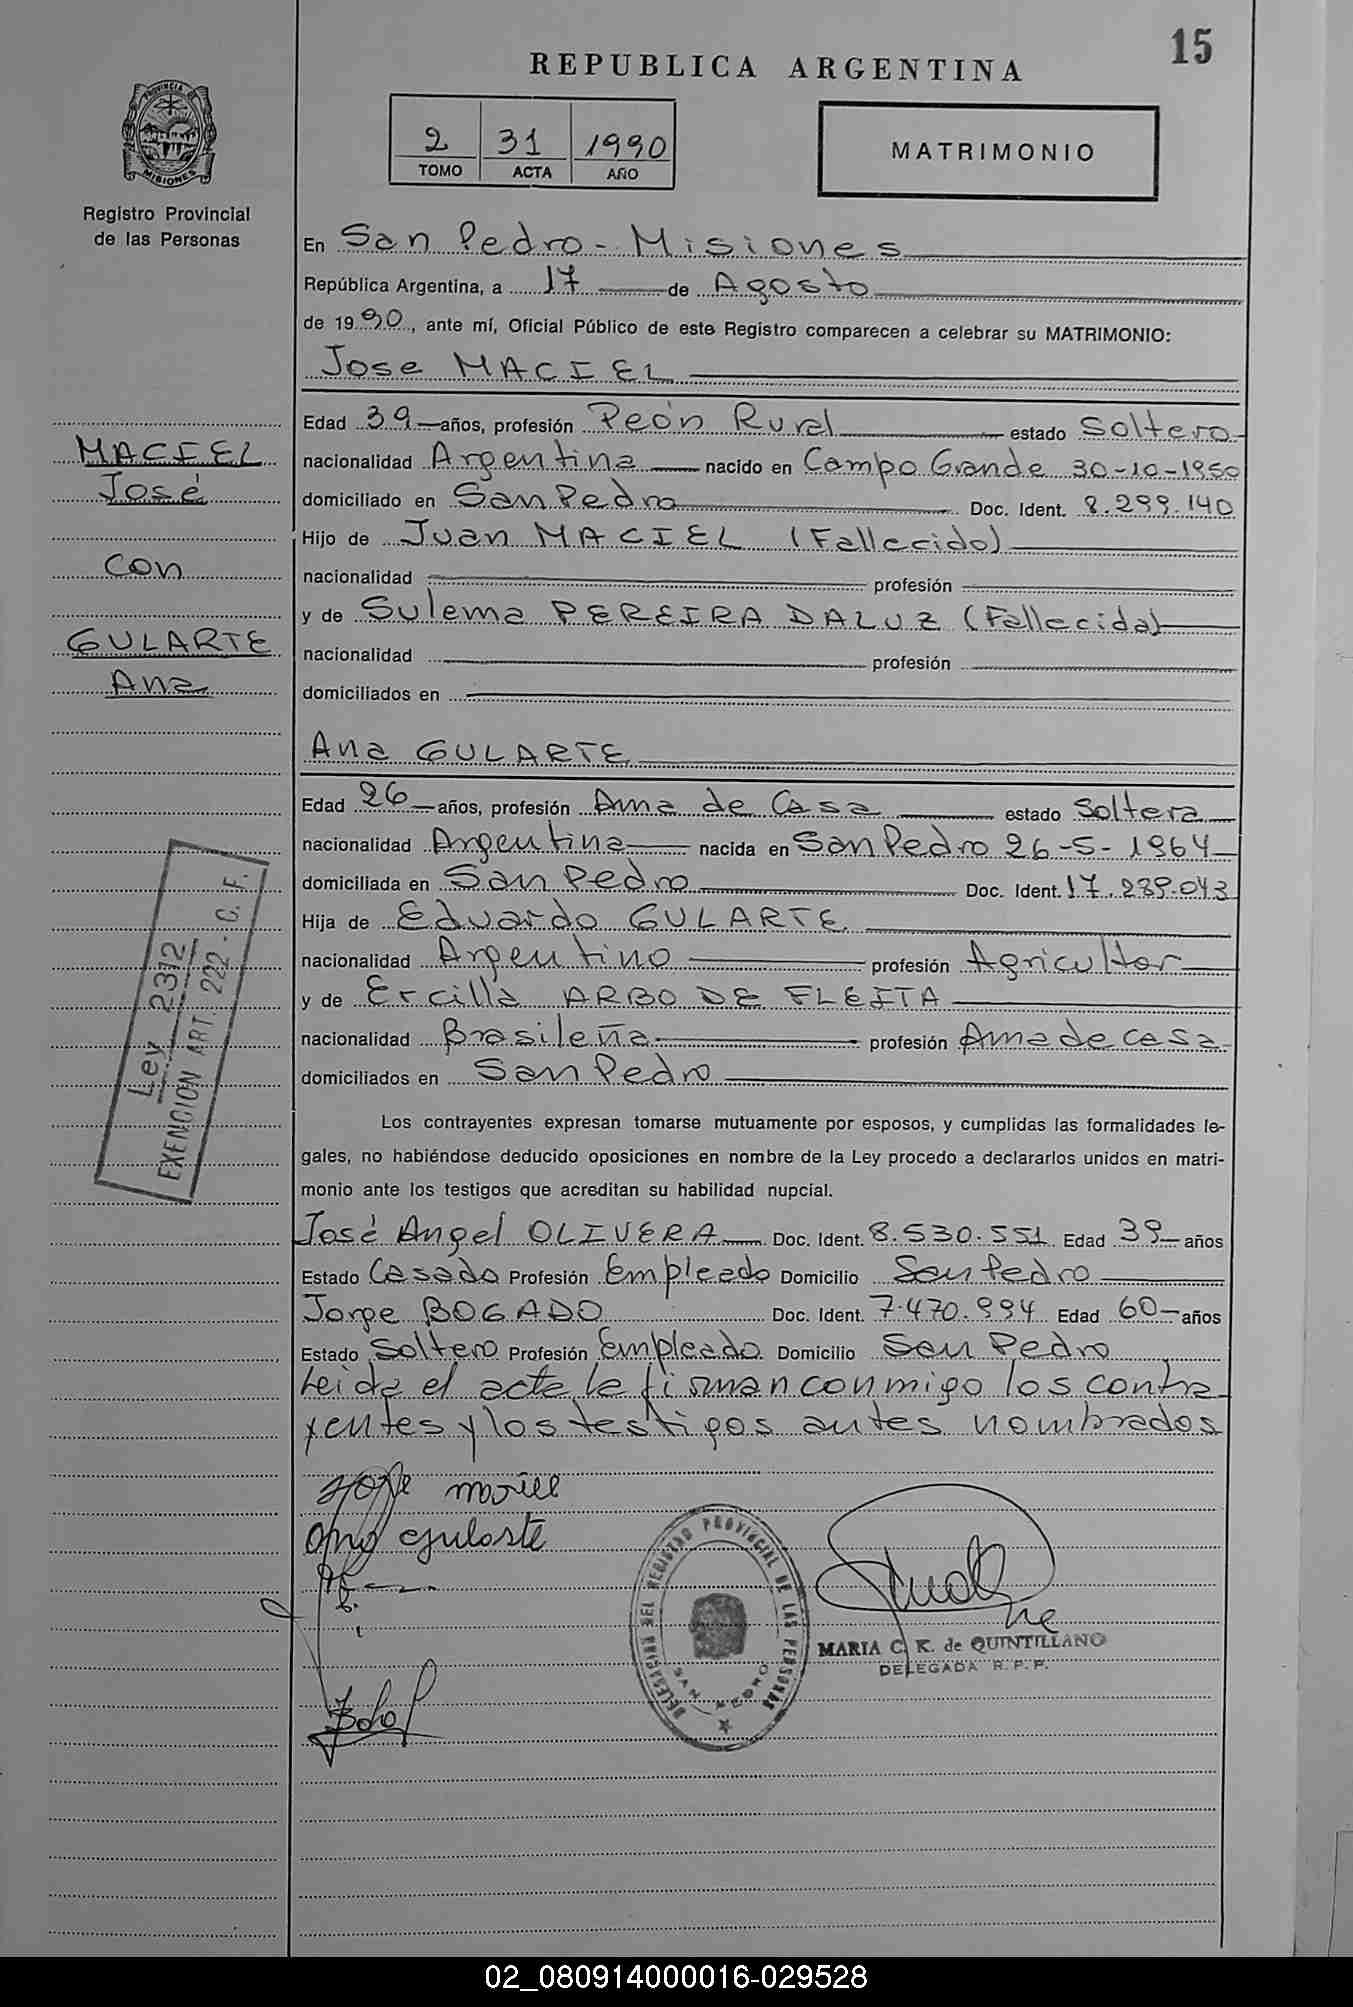 15
REPUBLICA ARGENTINA
2 31 1990
TOMO ACTA AÑO
MATRIMONIO
PROVINCIA DE
MISIONES
Registro Provincial
de las Personas
En San Pedro - Misiones
República Argentina, a 17 de Agosto
de 1990, ante mí, Oficial Público de este Registro comparecen a celebrar su MATRIMONIO:
Jose MACIEL
Edad 39 años, profesión Peón Rural estado Soltero
nacionalidad Argentina nacido en Campo Grande 30-10-1950
domiciliado en San Pedro Doc. Ident. 8.299.140
Hijo de Juan MACIEL (Fallecido)
nacionalidad profesión
y de Sulema PEREIRA DALUZ (Fallecida)
nacionalidad profesión
domiciliados en
MACIEL
José
con
GULARTE
Ana
Ana GULARTE
Edad 26 años, profesión Ama de Casa estado Soltera
nacionalidad Argentina nacida en San Pedro 26-5-1964
domiciliada en San Pedro Doc. Ident. 17.289.043
Hija de Eduardo GULARTE
nacionalidad Argentino profesión Agricultor
y de Ercilla ARBO DE FLEITA
nacionalidad Brasileña profesión Ama de casa
domiciliados en San Pedro
Ley 2312
EXENCION ART. 222 - C. F.
Los contrayentes expresan tomarse mutuamente por esposos, y cumplidas las formalidades le-
gales, no habiéndose deducido oposiciones en nombre de la Ley procedo a declararlos unidos en matri-
monio ante los testigos que acreditan su habilidad nupcial.
José Angel OLIVERA Doc. Ident. 8.530.551 Edad 39 años
Estado Casado Profesión Empleado Domicilio San Pedro
Jorge BOGADO Doc. Ident. 7.470.994 Edad 60 años
Estado Soltero Profesión Empleado Domicilio San Pedro
Leida el acta la firman conmigo los contra
yentes y los testigos antes nombrados
ana gularte
DELEGACION DEL REGISTRO PROVINCIAL DE LAS PERSONAS
SAN PEDRO
MARIA C. K. de QUINTILLANO
DELEGADA R. P. P.
02_080914000016-029528